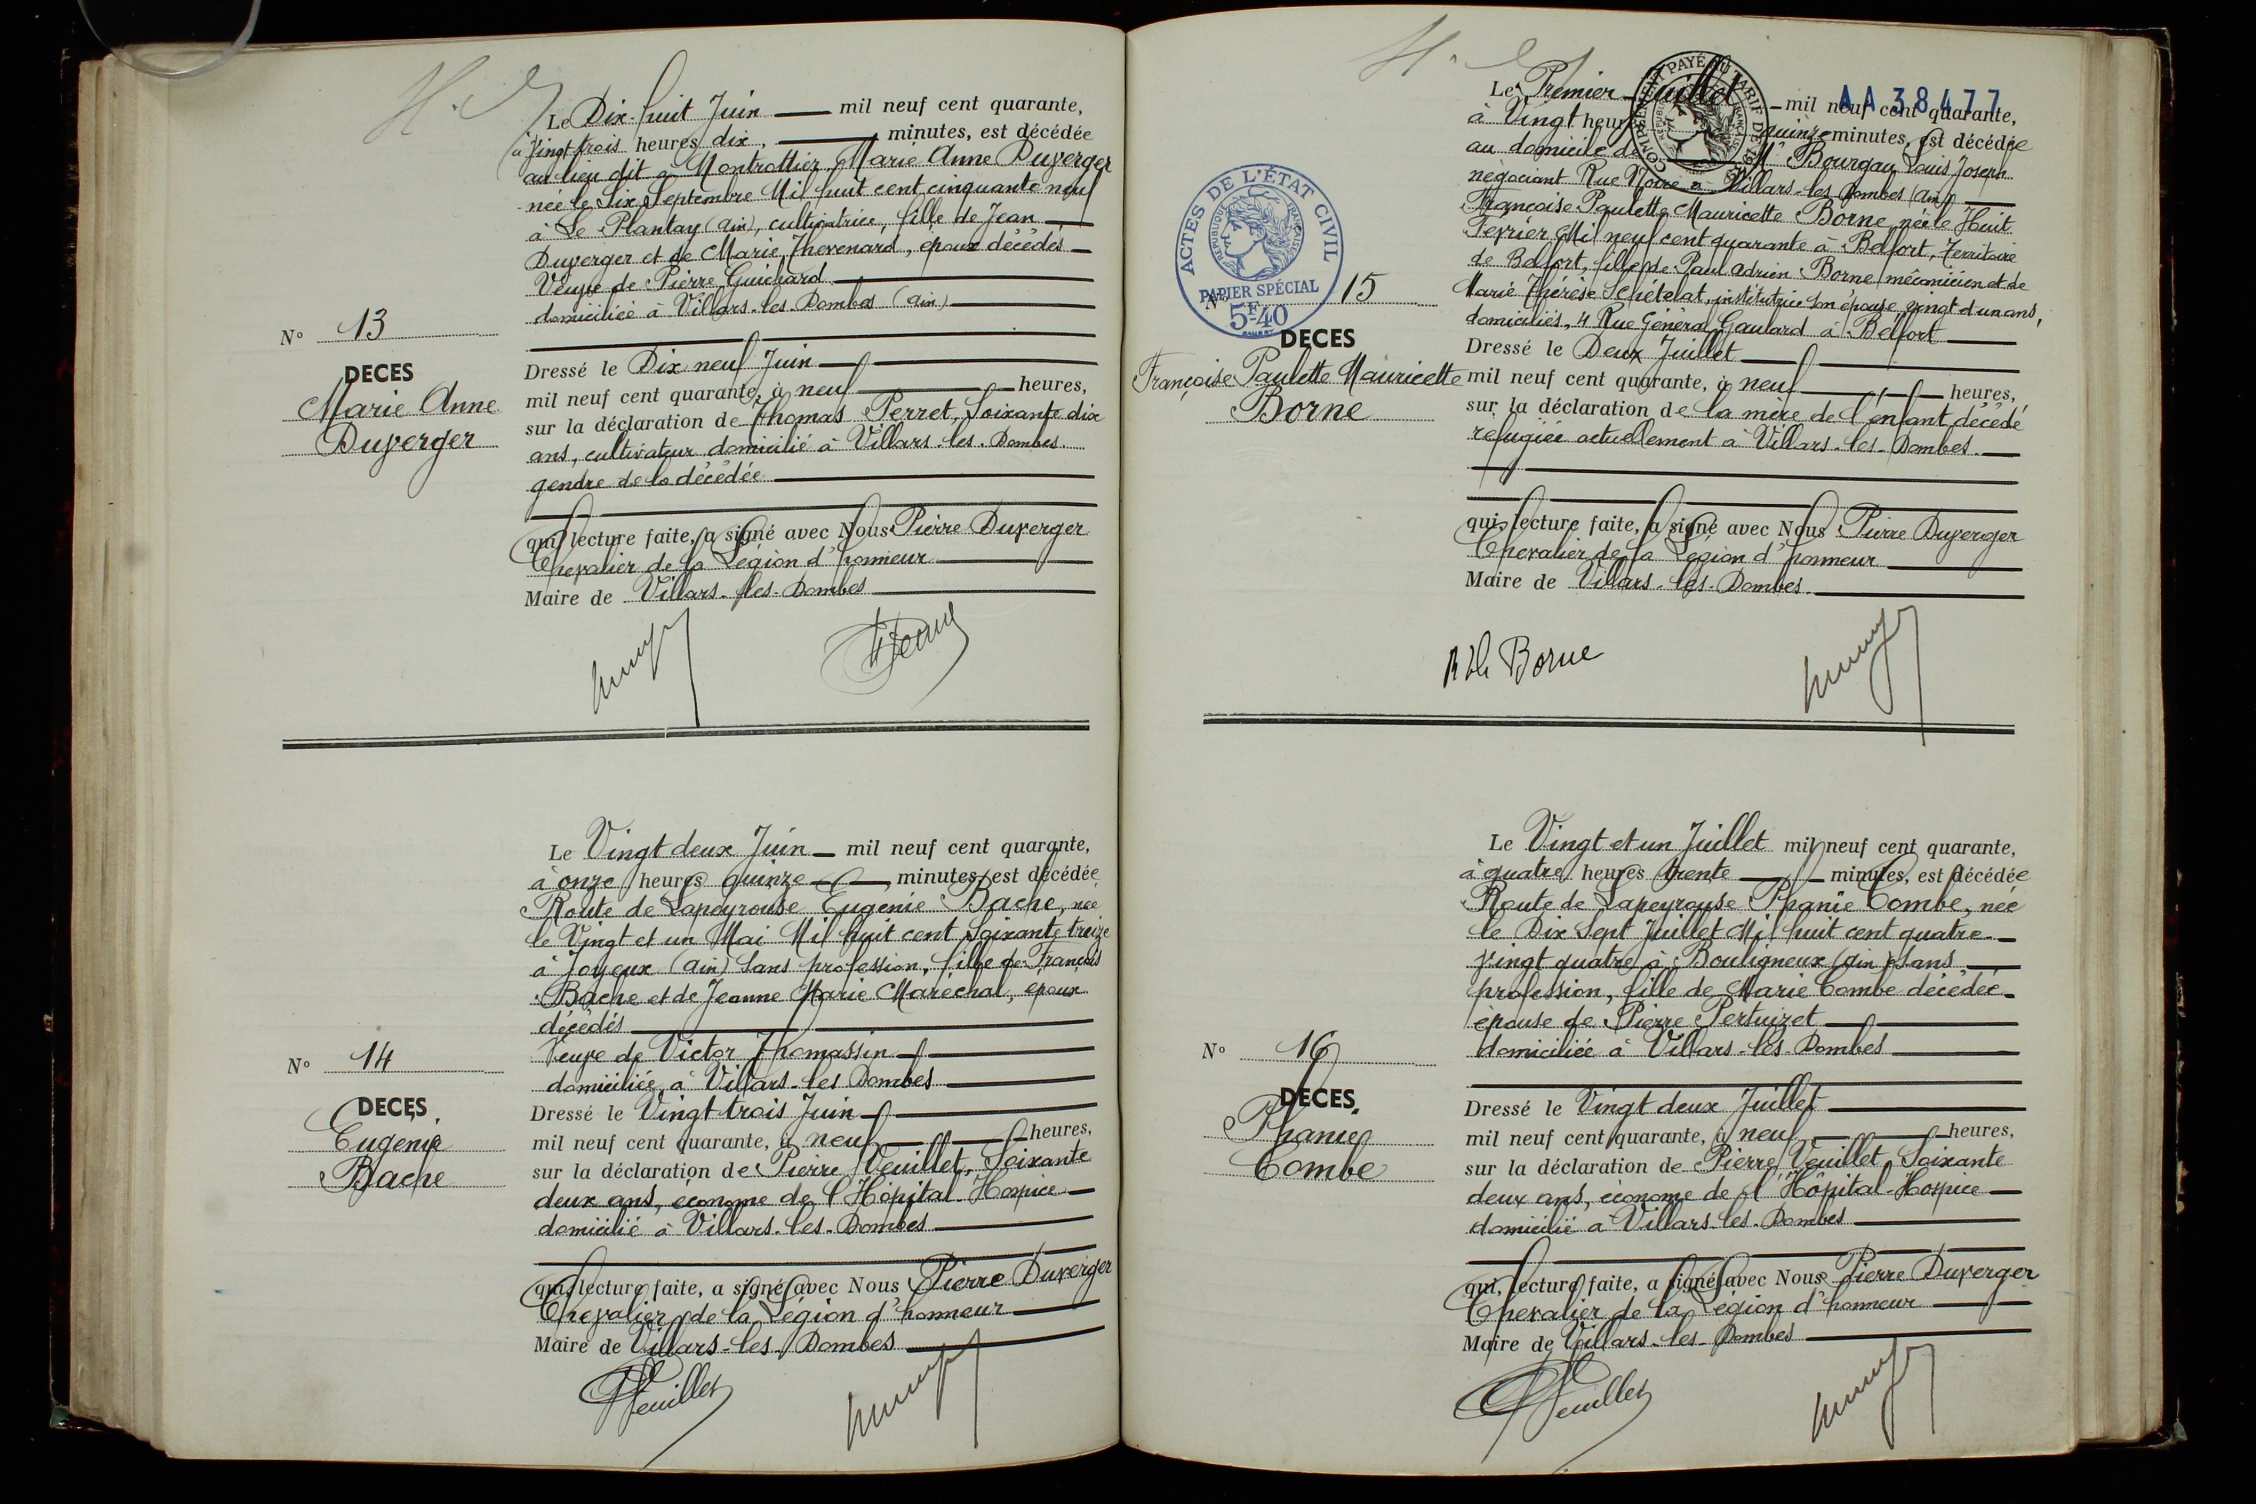 Le Dix-huit Juin mil neuf cent quarante,
à Vingt trois heures dix, minutes, est décédée
au lieu dit à Montrottier, Marie Anne Duverger
née le Six Septembre Mil huit cent cinquante neuf
à Le Plantay (Ain), cultivatrice, fille de Jean
Duverger et de Marie Thevenard, époux décédés
Veuve de Pierre Guichard
domiciliée à Villars-les-Dombes (Ain)
N° 13
DECES
Marie Anne
Duverger
Dressé le Dix neuf Juin
mil neuf cent quarante, à neuf heures,
sur la déclaration de Thomas Perret, Soixante dix
ans, cultivateur domicilié à Villars-les-Dombes
gendre de la décédée
qui, lecture faite, a signé avec Nous Pierre Duverger
Chevalier de la Légion d'honneur
Maire de Villars-les-Dombes
Le Vingt deux Juin mil neuf cent quarante,
à onze heures quinze minutes, est décédée
Route de Lapeyrouse Eugénie Bache, née
le Vingt et un Mai Mil huit cent Soixante treize
à Joyeux (Ain) Sans profession, fille de François
Bache et de Jeanne Marie Maréchal, époux
décédés
Veuve de Victor Thomassin
domiciliée à Villars-les-Dombes
N° 14
DECES
Eugénie
Bache
Dressé le Vingt trois Juin
mil neuf cent quarante, à neuf heures,
sur la déclaration de Pierre Veuillet, Soixante
deux ans, économe de l'Hôpital-Hospice
domicilié à Villars-les-Dombes
qui, lecture faite, a signé avec Nous Pierre Duverger
Chevalier de la Légion d'honneur
Maire de Villars-les-Dombes
PVeuillet
AA 38477
Le Premier Juillet mil neuf cent quarante,
à Vingt heures quinze minutes, est décédée
au domicile de Mr Bourgay Louis Joseph
négociant Rue Noire à Villars-les-Dombes (Ain)
Françoise Paulette Mauricette Borne née le Huit
Février Mil neuf cent quarante à Belfort, Territoire
de Belfort, fille de Paul Adrien Borne mécanicien et de
Marie Thérèse Schételat, institutrice son épouse vingt d'un ans,
domiciliés, 4 Rue Général Gaulard à Belfort
ACTES DE L'ÉTAT CIVIL
RÉPUBLIQUE FRANÇAISE
PAPIER SPÉCIAL
5F40
N° 15
DECES
Françoise Paulette Mauricette
Borne
Dressé le Deux Juillet
mil neuf cent quarante, à neuf heures,
sur la déclaration de la mère de l'enfant décédé
réfugiée actuellement à Villars-les-Dombes.
qui, lecture faite, a signé avec Nous Pierre Duverger
Chevalier de la Légion d'honneur
Maire de Villars-les-Dombes.
Borne
Le Vingt et un Juillet mil neuf cent quarante,
à quatre heures trente minutes, est décédée
Route de Lapeyrouse Phanie Combe, née
le Dix Sept Juillet Mil huit cent quatre
vingt quatre à Bouligneux (Ain) Sans
profession, fille de Marie Combe décédée
épouse de Pierre Pertuizet
domiciliée à Villars-les-Dombes
N° 16
DECES
Phanie
Combe
Dressé le Vingt deux Juillet
mil neuf cent quarante, à neuf heures,
sur la déclaration de Pierre Veuillet, Soixante
deux ans, économe de l'Hôpital-Hospice
domicilié à Villars-les-Dombes
qui, lecture faite, a signé avec Nous Pierre Duverger
Chevalier de la Légion d'honneur
Maire de Villars-les-Dombes
PVeuillet